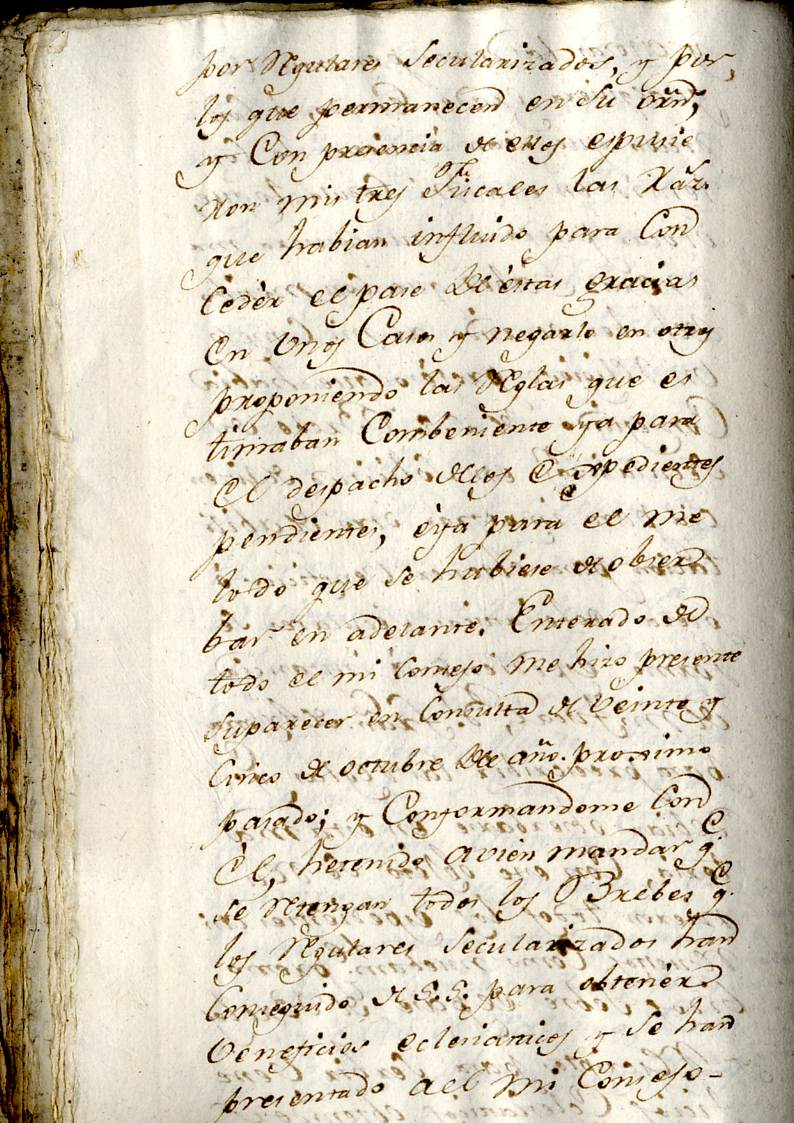 por Rgulares Secularizados, y por,
los que permanecen en su orñ,
y Con preciencia de ellos espusie
ron mis tres Fiscales las Raz.
que habian influido para Con
Ceder el pase de éstas gracias
En Unos Casos y negarlo en otros
proponiendo las Rglas que es
timaban Combeniente ya para
El despacho de los Expedientes
pendientes, éya para el me
todo que se hubiese de obser
bar en adelante. Enterado de
todo el mi Consejo me hizo presente
su parecer en Consulta de Veinte y
Cinco de octubre del año. proximo
pasado; y Conformandome Con
Él, hetenido avien mandar q.e
se Rtengan todos los Brebes q.e
los Rgulares Secularizados han
Conseguido de S.S. para obtener
Veneficios eclesiasticos y se han
presentado a el mi Consejo-